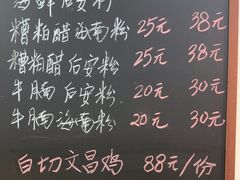 海鲜后安粉
糟粕醋海南粉 25元 38元
糟粕醋后安粉 25元 38元
牛腩后安粉 20元 30元
牛腩海南粉 20元 30元
白切文昌鸡 88元/份